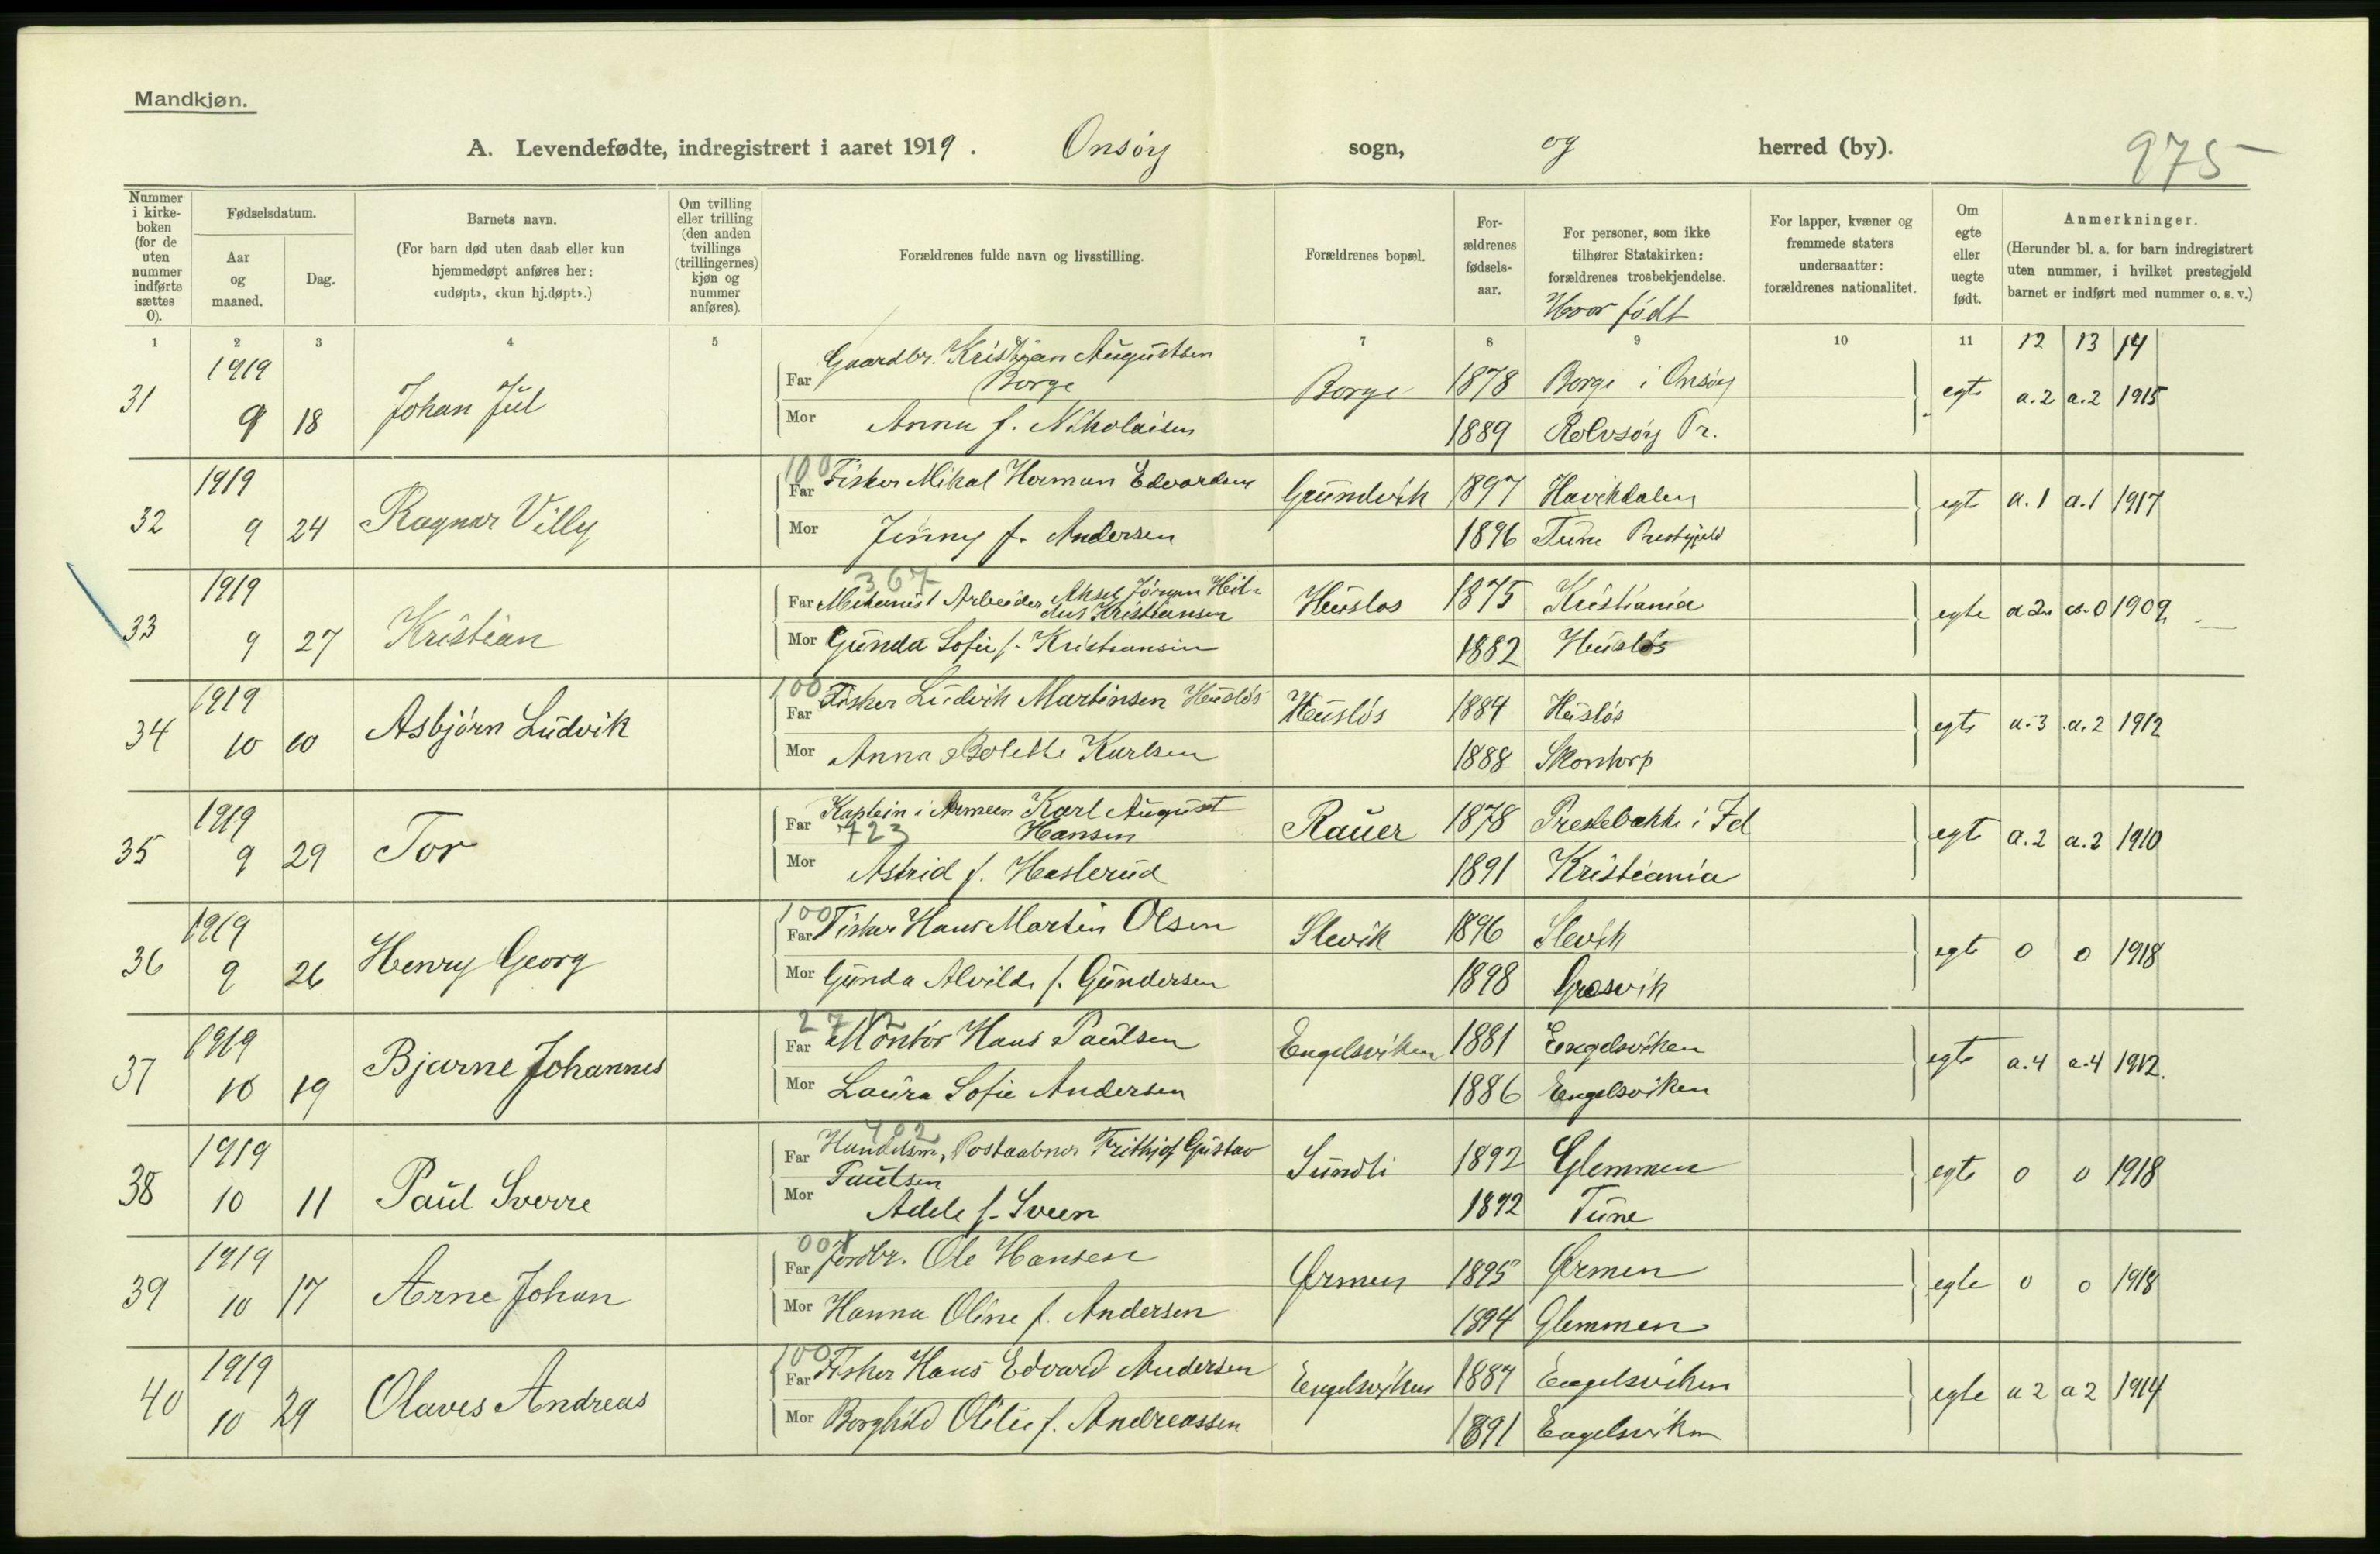 Mandkjøn.
A. Levendefødte, indregistrert i aaret 1919. Onsøy sogn, og herred (by). 975
Nummer i kirke-boken (for de uten nummer indførte sættes 0).
Fødselsdatum.
Aar og maaned.
Dag.
Barnets navn.
(For barn død uten daab eller kun hjemmedøpt anføres her: «udøpt», «kun hj.døpt».)
Om tvilling eller trilling (den anden tvillings (trillingernes) kjøn og nummer anføres).
Forældrenes fulde navn og livsstilling.
Forældrenes bopæl.
For-ældrenes fødsels-aar.
For personer, som ikke tilhører Statskirken: forældrenes trosbekjendelse.
Hvor født
For lapper, kvæner og fremmede staters undersaatter: forældrenes nationalitet.
Om egte eller uegte født.
Anmerkninger.
(Herunder bl. a. for barn indregistrert uten nummer, i hvilket prestegjeld barnet er indført med nummer o. s. v.)
1 2 3 4 5 7 8 9 10 11 12 13 14
31 1919 9 18 Johan Jul Far Gaardbr. Kristian Augustsen Borge Borge 1878 Borge i Onsøy egte a.2 a.2 1915
Mor Anna f. Nikolaisen 1889 Rolvsøy Pr.
32 1919 9 24 Ragnar Villy 100 Far Fisker Mikal Herman Edvardsen Grundvik 1897 Havikdalen egte a.1 a.1 1917
Mor Jenny f. Andersen 1896 Tune Prestgjeld
33 1919 9 27 Kristian 367 Far Mekanisk Arbeider Aksel Kristiansen Husløs 1875 Kristiania egte a 2 a. 0 1909
Mor Gunda Sofie f. Kristiansen 1882 Husløs
34 1919 10 10 Asbjørn Ludvik 100 Far Fisker Ludvik Martinsen Husløs Husløs 1884 Husløs egte a.3 a.2 1912
Mor Anna Bolette Karlsen 1888 Skontorp
35 1919 9 29 Tor Far Kaptein i Armeen Karl August Hansen 723 Rauer 1878 Prestebakke i Id egte a.2 a.2 1910
Mor Astrid f. Haslerud 1891 Kristiania
36 1919 9 26 Henry Georg 100 Far Fisker Hans Martin Olsen Slevik 1896 Slevik egte 0 0 1918
Mor Gunda Alvilde f. Gundersen 1898 Gresvik
37 1919 10 19 Bjarne Johannes 272 Far Montør Hans Paulsen Engelsviken 1881 Engelsviken egte a.4 a.4 1912.
Mor Laura Sofie Andersen 1886 Engelsviken
38 1919 10 11 Paul Sverre 402 Far Handelsm, Postaabner Frithjof Gustav Paulsen Sundli 1892 Glemmen egte 0 0 1918
Mor Adele f. Sveen 1892 Tune
39 1919 10 17 Arne Johan 001 Far Jordbr. Ole Hansen Ørmen 1895 Ørmen egte 0 0 1918
Mor Hanna Oline f. Andersen 1894 Glemmen
40 1919 10 29 Olaves Andreas 100 Far Fisker Hans Edvard Andersen Engelsviken 1887 Engelsviken egte a 2 a 2 1914
Mor Borghild Otilie f. Andreassen 1891 Engelsviken